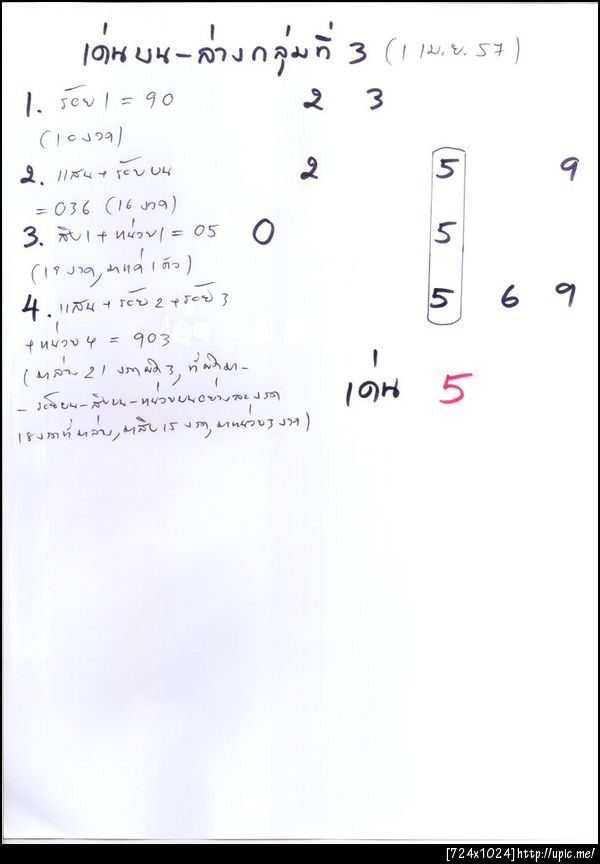 เด่นบน-ล่างกลุ่มที่ 3 (1 เม.ย. 57)
1. ร้อย 1 = 90 2 3
(10 งวด)
2. แสน + ร้อยบน 2 5 9
= 036 (16 งวด)
3. สิบ 1 + หน่วย 1 = 05 0 5
(19 งวด, มาแค่ 1 ตัว)
4. แสน + ร้อย 2 + ร้อย 3 5 6 9
+ หน่วย 4 = 903
(มาล่าง 21 งวดผิด 3, ที่ผิดมา-
- ร้อยบน-สิบบน-หน่วยบนอย่างละงวด
18 งวดที่มาล่าง, มาสิบ 15 งวด, มาหน่วย 3 งวด)
เด่น 5
[724x1024]http://upic.me/